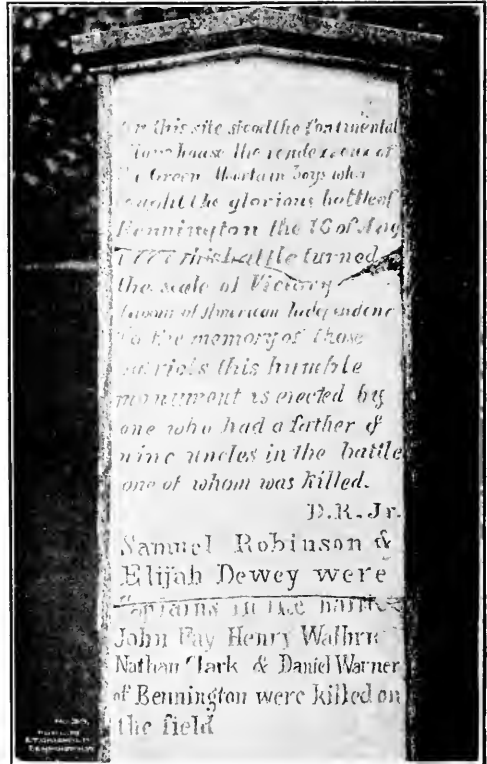 this site stood the Continental
house the rendezvous of
Green Mountain Boys who
the glorious battle of
Bennington the 16 of Aug
1777 this battle turned
the scale of Victory
favour of American Independenc
To the memory of those
patriots this humble
monument is erected by
one who had a father &
nine uncles in the battle
one of whom was killed.
D.R. Jr.
Samuel Robinson &
Elijah Dewey were
Captains in the battle
John Fay Henry Walbri
Nathan Clark & Daniel Warner
of Bennington were killed on
the field